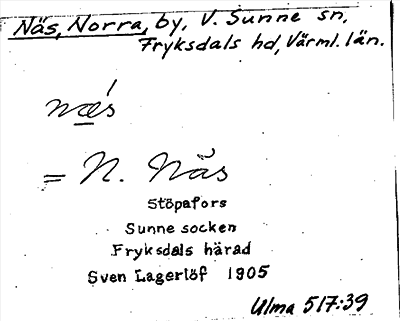 Näs, Norra, by, V. Sunne sn,
Fryksdals hd, Värml. län.
næ´s
= N. Näs
Stöpafors
Sunne socken
Fryksdals härad
Sven Lagerlöf 1905
Ulma 517:39